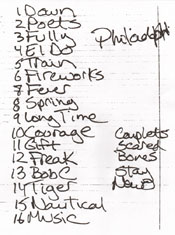 1 Dawn
2 Poets
3 Fully
Philadelphi
4 El Do
5 Train
6 Fireworks
7 Fever
8 Spring
9 Long Time
10 Courage Couplets
11 Gift Scared
12 Freak Bones
13 Bob C Stay
14 Tiger New
15 Nautical
16 Music